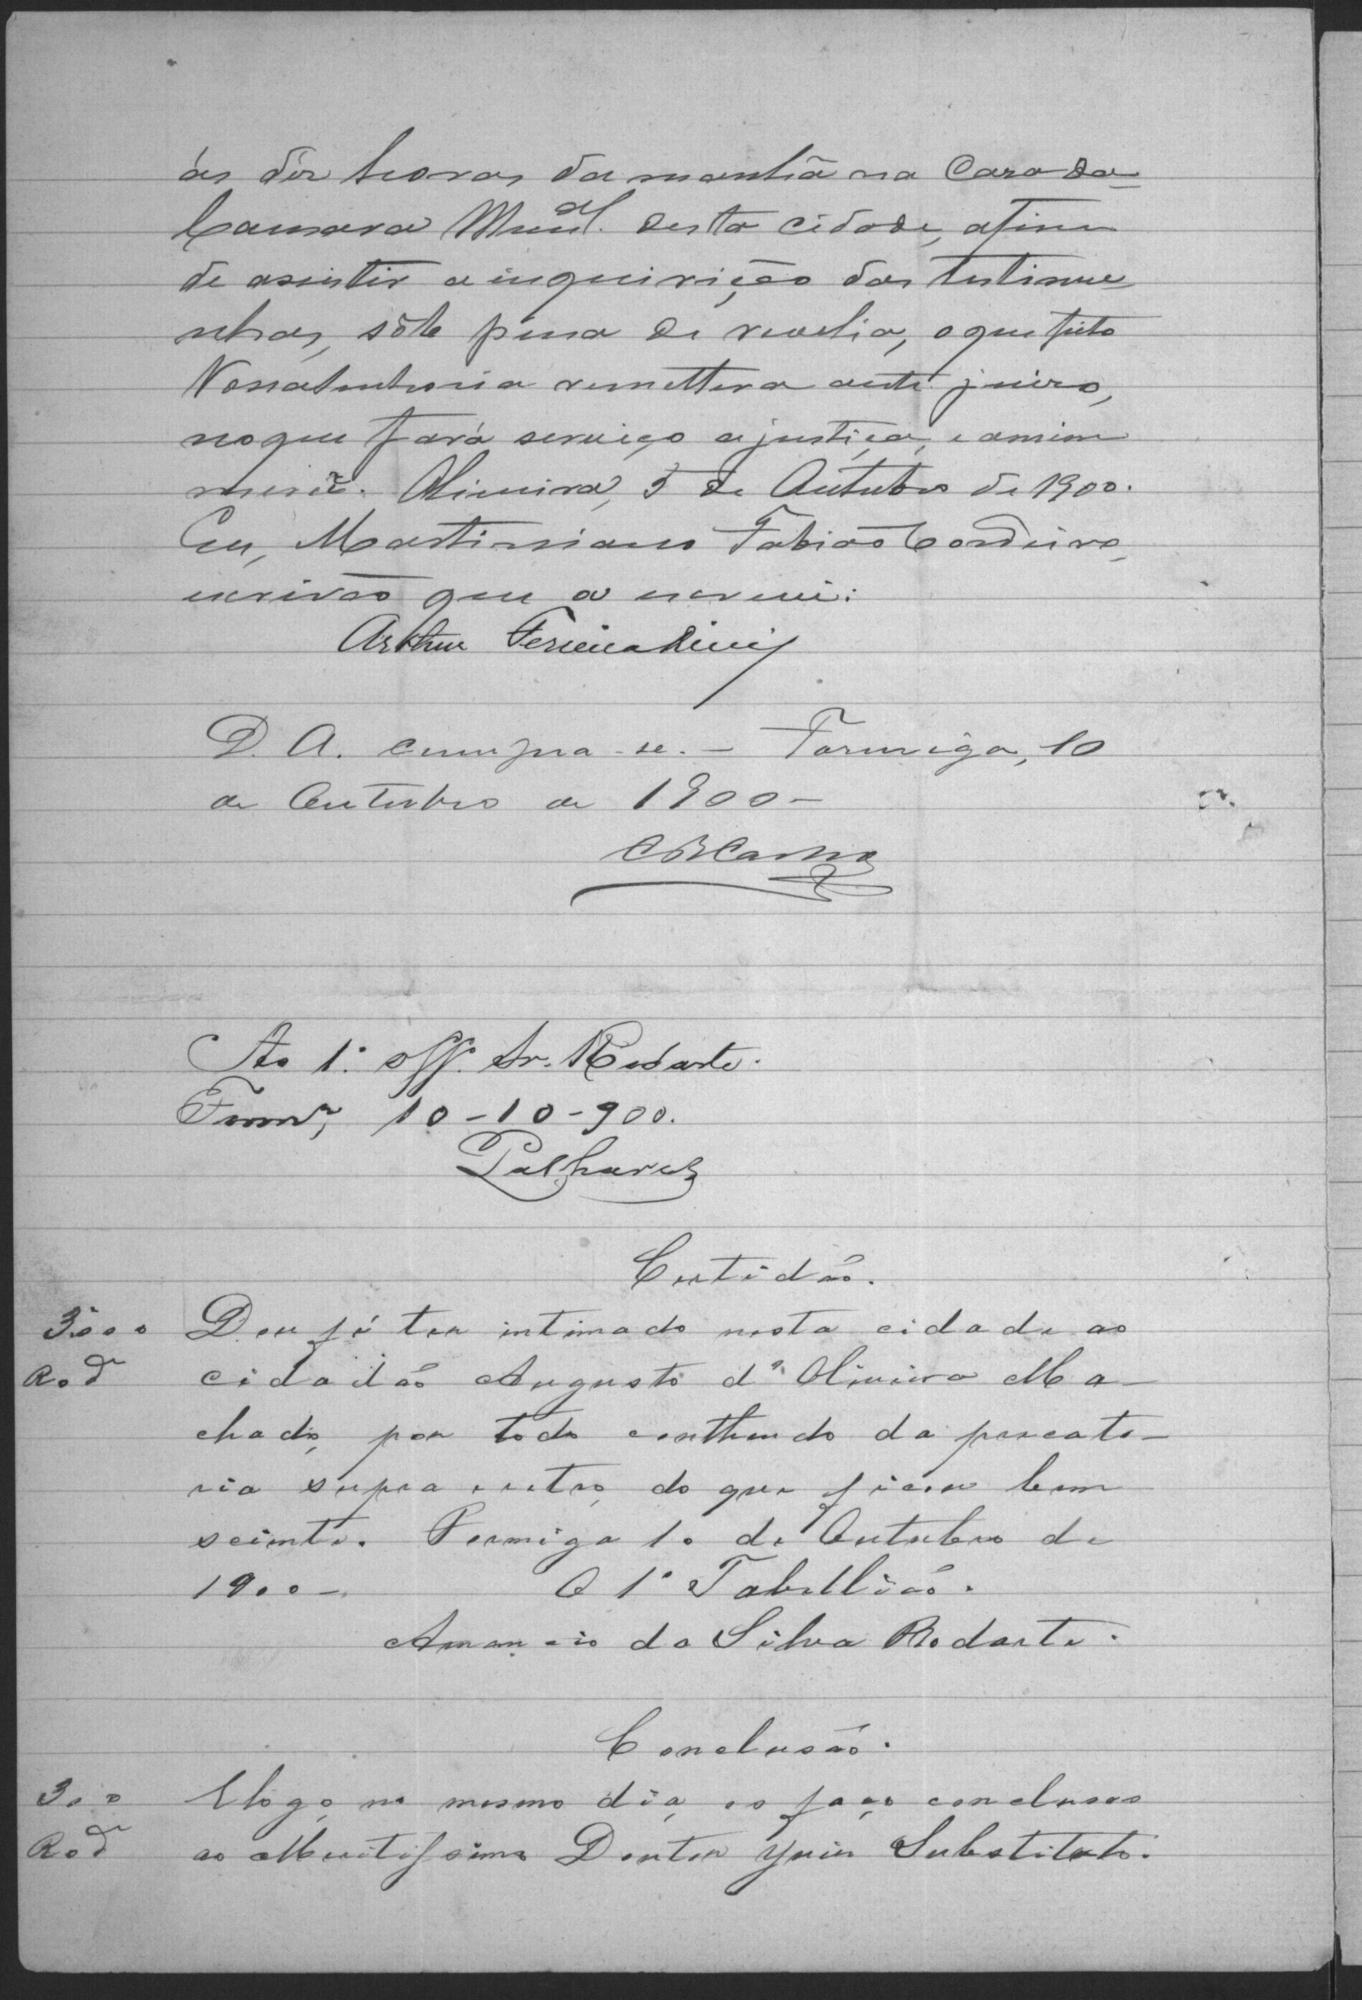 ás déz horas da manhã na Casa da
Camara Mun.al desta cidade, afim
de assistir a inquirição das testimu-
nhas, sôb pena de revelia, o que feito
Vossa Senhoria remetterá a este juizo,
no que fará serviço a justiça, e a mim
mercê. Oliveira, 5 de Outubro de 1900.
Eu, Martiniano Fabião Cordeiro,
escrivão que a escrevi:
Arthur Ferreira Diniz
D. A. cumpra-se. — Formiga, 10
de Outubro de 1900 —
Ao 1º. off. Sr. Rodarte.
Form.ª, 10-10-900.
Palhares
Certidão.
3000 Dou fé ter intimado nesta cidade ao
Rod.e cidadão Augusto d' Oliveira Ma-
chado, por todo conthendo da precato-
ria supra e retro, do que ficou bem
sciente. Formiga 10 de Outubro de
1900 — O 1º Tabellião.
Amancio da Silva Rodarte.
Conclusão.
300 E logo, no mesmo dia, os faço conclusos
Rod.e ao Meritissimo Doutor Juiz Substituto.